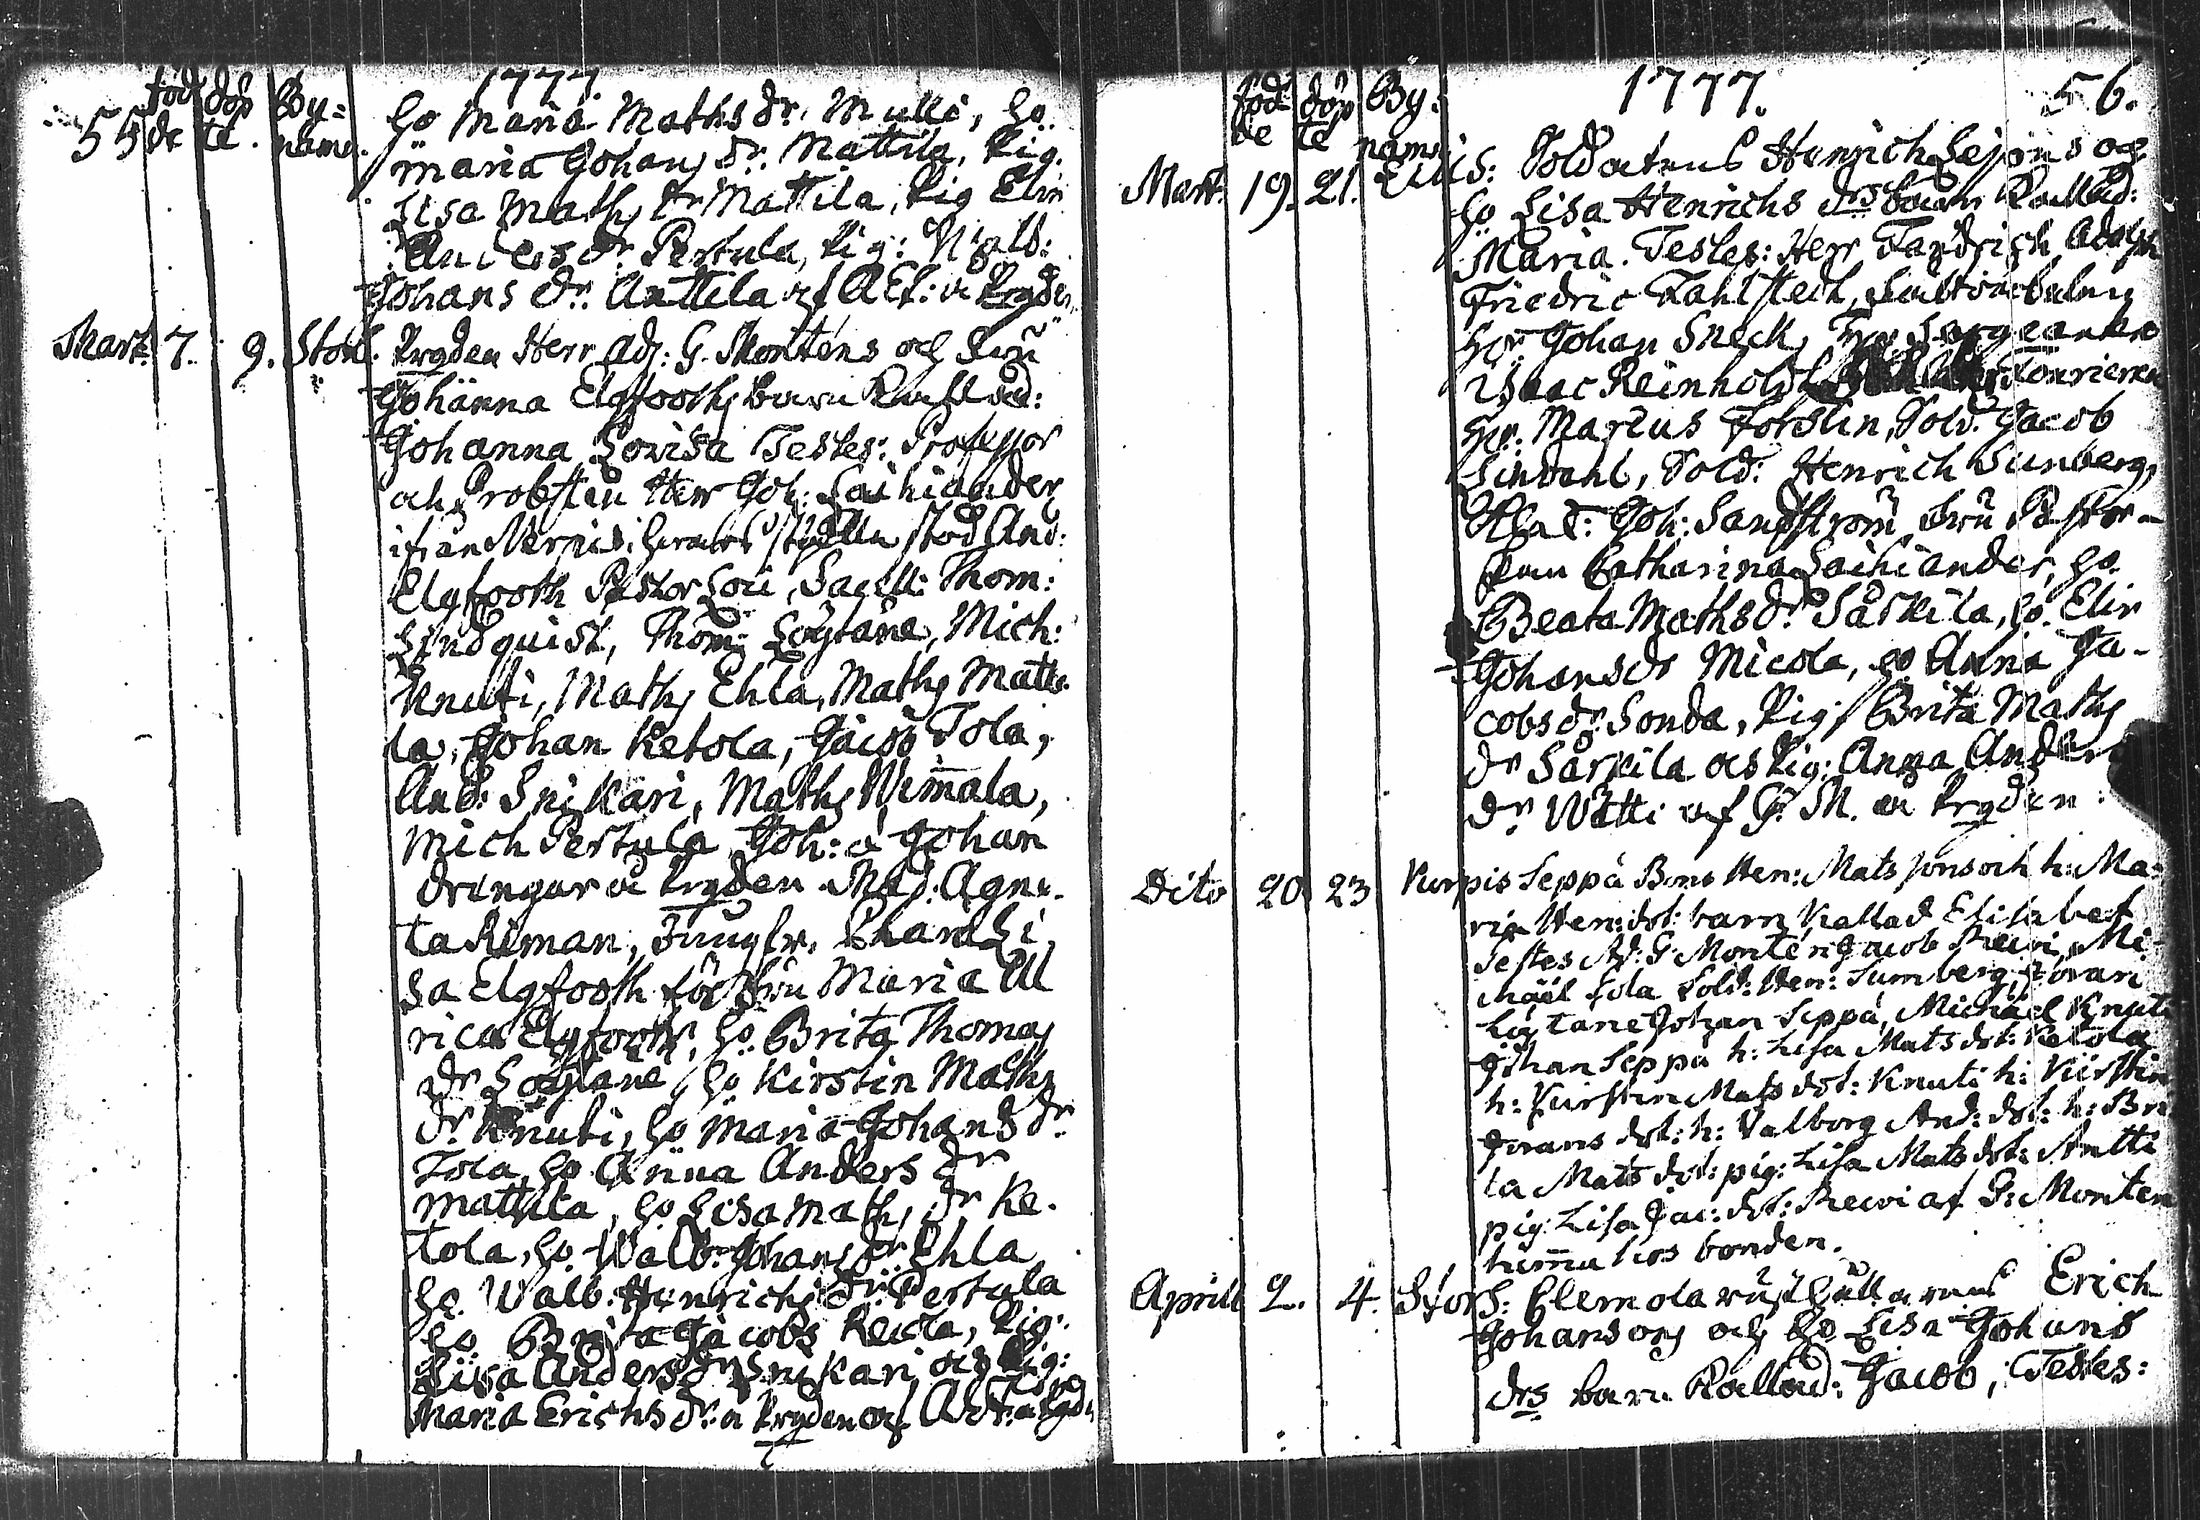 1777.
55 föd de döp te. By= namn.
ho Maria Mathsdr. Mulli, ho.
Maria Johans dr. Mattila, Pig.
Lisa Maths dr Mattila, Pig Elin
Anders dr. Pertula, Pig: Walb:
Johans dr. Anttila af
Mart. 7. 9. Stor Prgdn Herr Adj: G. Monténs och fru
Johanna Elgfooths barn kallad:
Johanna Lovisa Testes: Professor
och Probsten Herr Joh: Laihiander
ifrån stod And:
Elgfooth Pastor Loci, Sacell: Thom:
Lindquist, Thom: Löytäne, Mich:
Knuti, Maths Ehla, Maths Matti
la, Johan Ketola, Jacob Tola,
And: Snikari, Maths Wim̄ala,
Mich Pertula Joh: a Johan
drängar a Prgdn Mad: Agne-
ta Riman, Jungfr. Li
sa Elgfooth för fru Maria Ul
rica Elgfooth, ho. Brita Thomas
dr Löytäne, ho Kirstin Maths
dr. Knuti, ho Maria Johans dr.
Tola, ho Anna Anders dr
Mattila, ho Lisa Maths dr Ke-
tola, ho. Walb: Johans dr. Ehla
ho. Walb: Henrichs dr. Pertula
ho Brita Jacobs Pig:
Lisa Anders dr Snikari och Pig:
Maria Erichs dr. a Prgdn af
föd de döp te By= namn 1777. 56.
Mart. 19. 21. S: Soldatens Henrich och
ho Lisa Henrichs drs barn kallad:
Maria. Testes: Herr Fändrich Adolph
Friedric Fahlstedt,
Hr Johan Sneck, Hr Sergeanten
Isaac Reinhold
Hr. Marcus Forslin, Sold. Jacob
Lindahl, Sold: Henrich Sunberg,
Joh: Sandström fru Pastor-
skan Catharina Laihiander, ho.
Beata Mathsdr. Särkila, ho. Elin
Johansdr Micola, ho Anna Ja-
cobsdr. Sonda, Pig: Brita Maths
dr Särkila och Pig: Anna Anders
dr. Witti af G. M. a Prgdn.
Dito 20 23 Kurpis Seppä Bond Hen: Matssons och h: Ma-
ria Hen: dot: barn kallad Elisabet
Testes Ad: G: Montén Jacob Mi-
chäel Tola Sold: Hen: Sumberg, Jöran
Löytäne Johan Seppä, Michäel Knuti
Johan Seppä h: Lisa Mats dot: Ketola
h: Kirstin Mats dot: Knuti h: Kirstin
Jörans dot: h: Valborg And: dot: h: Bri
ta Mats dot: pig: Lisa Mats dot: Antti
pig: Lisa Jac: dot: af G: Monten
hem̄a hos bonden.
Aprill 2. 4. Stor S: Clemola Erich
Johanssons och ho Lisa Johans
drs barn Kallad: Jacob, Testes: